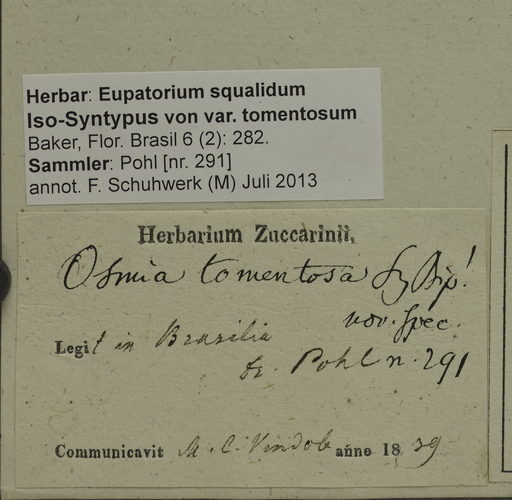 Herbar: Eupatorium squalidum
Iso-Syntypus von var. tomentosum
Baker, Flor. Brasil 6 (2): 282.
Sammler: Pohl [nr. 291]
annot. F. Schuhwerk (M) Juli 2013
Herbarium Zuccarinii,
Osmia tomentosa Sz Bip!
nov. spec.
Legit in Brasilia
Pohl n. 291
Communicavit M. C. Vindob anno 1839